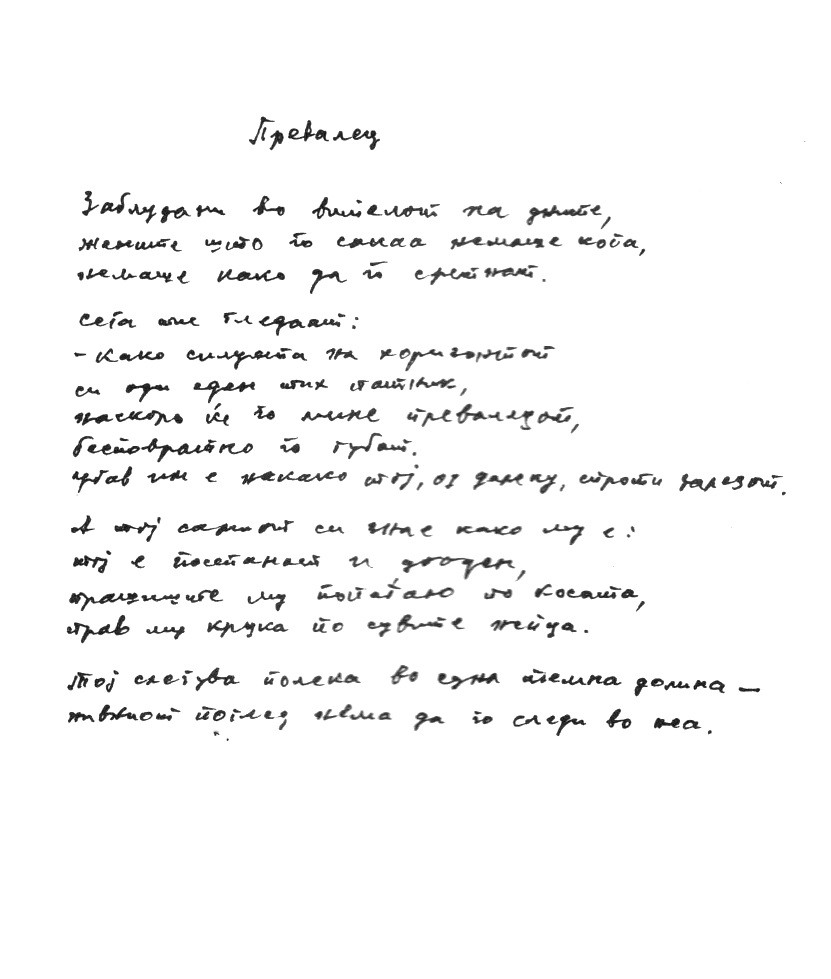 Превалец
Заблудани во вителот на дните,
жените што го сакаа немаше кога,
немаше како да го сретнат.
Сега тие гледаат:
– Како силуета на хоризонтот
си оди еден тих патник,
наскоро ќе го мине превалецот,
бесповратно го губат.
Убав им е некако тој, од далеку, спроти залезот.
А тој самиот си знае како му е:
тој е посетнат и дооден,
му попаѓаю по косата,
прав му крука по сувите
Тој слегува полека во една темна долина –
нивниот поглед нема да го следи во неа.